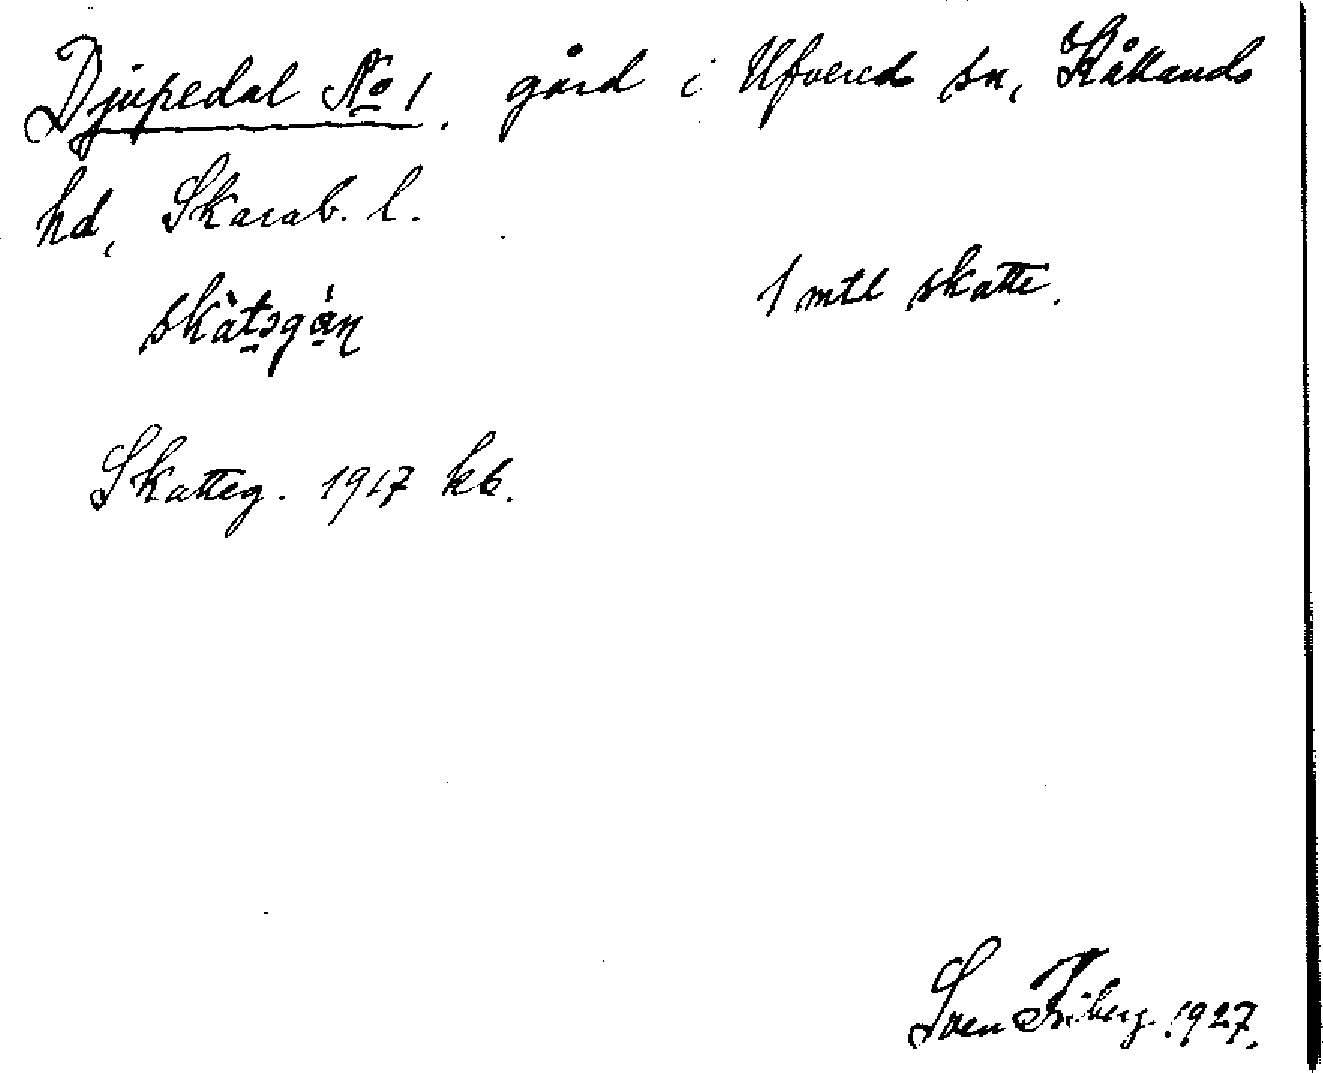 Djupedal No 1. gård i Ufvered sn, Kållands
hd, Skarab. l.
1 mtl skatte.
skàtəgán
Skatteg. 1917 kb.
Sven Friberg. 1927.